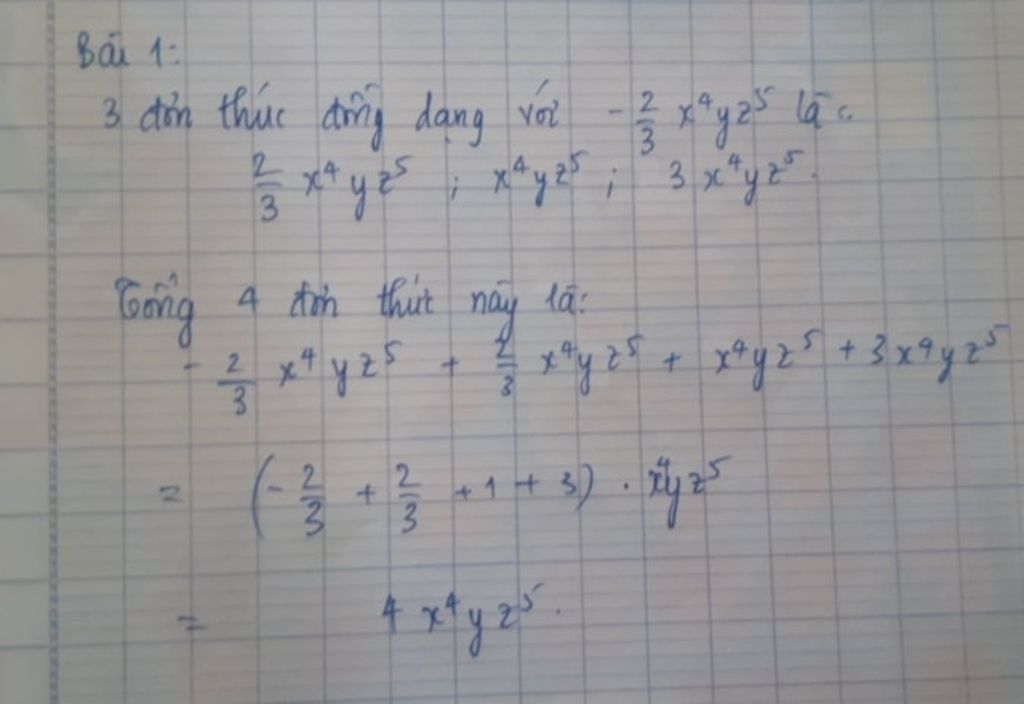 Bài 1:
3 đơn thức đồng dạng với -2/3 x⁴yz⁵ là:
2/3 x⁴yz⁵ ; x⁴yz⁵ ; 3x⁴yz⁵.
Tổng 4 đơn thức này là:
-2/3 x⁴yz⁵ + 2/3 x⁴yz⁵ + x⁴yz⁵ + 3x⁴yz⁵
= (-2/3 + 2/3 + 1 + 3) . x⁴yz⁵
= 4x⁴yz⁵.